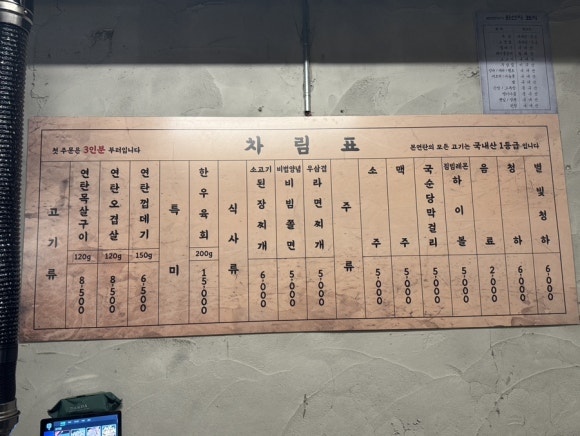 차 림 표
첫 주문은 3인분 부터입니다
본연탄의 모든 고기는 국내산 1등급 입니다
고기류
연탄목살구이 120g 8,500
연탄오겹살 120g 8,500
연탄껍데기 150g 6,500
특미
한우육회 200g 15,000
식사류
소고기 된장찌개 6,000
비법양념 비빔쫄면 5,000
우삼겹 라면찌개 5,000
주류
소주 5,000
맥주 5,000
국순당막걸리 5,000
짐빔레몬 하이볼 5,000
음료 2,000
청하 6,000
별빛청하 6,000